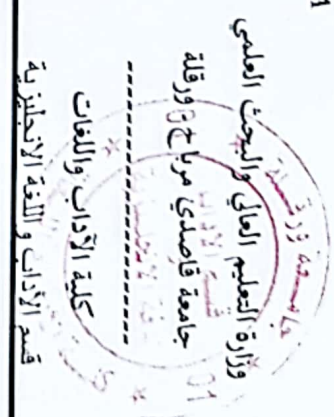 وزارة التعليم العالي والبحث العلمي
جامعة قاصدي مرباح ورقلة
--------------------
كلية الآداب واللغات
قسم الآداب واللغة الانجليزية